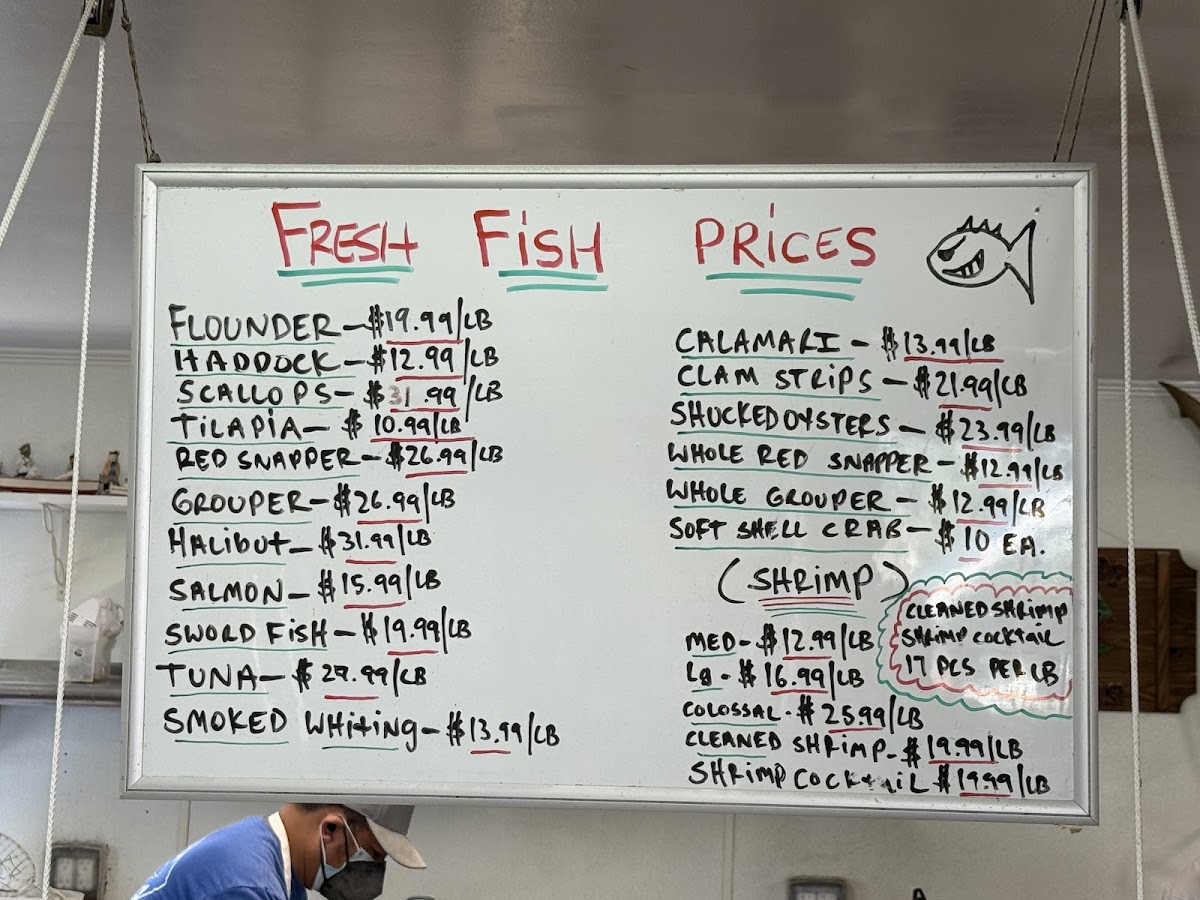 FRESH FiSH PRiCES
FLOUNDER-$19.99/LB
HADDOCK-$12.99/LB
SCALLOPS-$31.99/LB
TiLAPiA-$10.99/LB
RED SNAPPER-$26.99/LB
GROUPER-$26.99/LB
HALibUt-$31.99/LB
SALMON-$15.99/LB
SWORD FiSH-$19.99/LB
TUNA-$29.99/LB
SMOKED WHiting-$13.99/LB
CALAMARI-$13.99/LB
CLAM STRiPS-$21.99/LB
SHUCKED OYSTERS-$23.99/LB
WHOLE RED SNAPPER-$12.99/LB
WHOLE GROUPER-$12.99/LB
SOFT SHELL CRAB-$10 EA.
(SHRiMP)
MED-$12.99/LB
Lg-$16.99/LB
COLOSSAL-$25.99/LB
CLEANED SHRiMP-$19.99/LB
SHRiMP COCKtAiL $19.99/LB
CLEANED SHRiMP
SHRiMP COCKtAiL
17 PCS PER LB